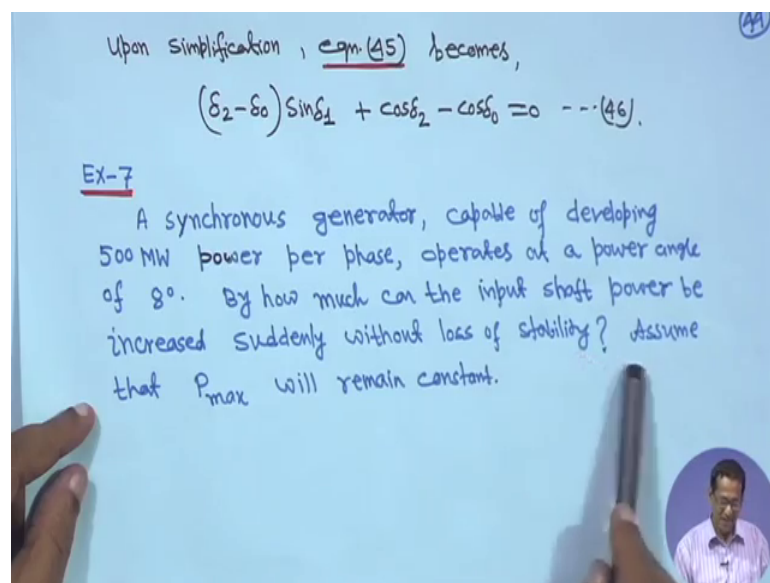 44
Upon simplification, eqn.(45) becomes,
(δ₂-δ₀) Sinδ₁ + cosδ₂ - cosδ₀ = 0 ---(46).
Ex-7
A synchronous generator, capable of developing
500 MW power per phase, operates at a power angle
of 8°. By how much can the input shaft power be
increased suddenly without loss of stability? Assume
that Pmax will remain constant.